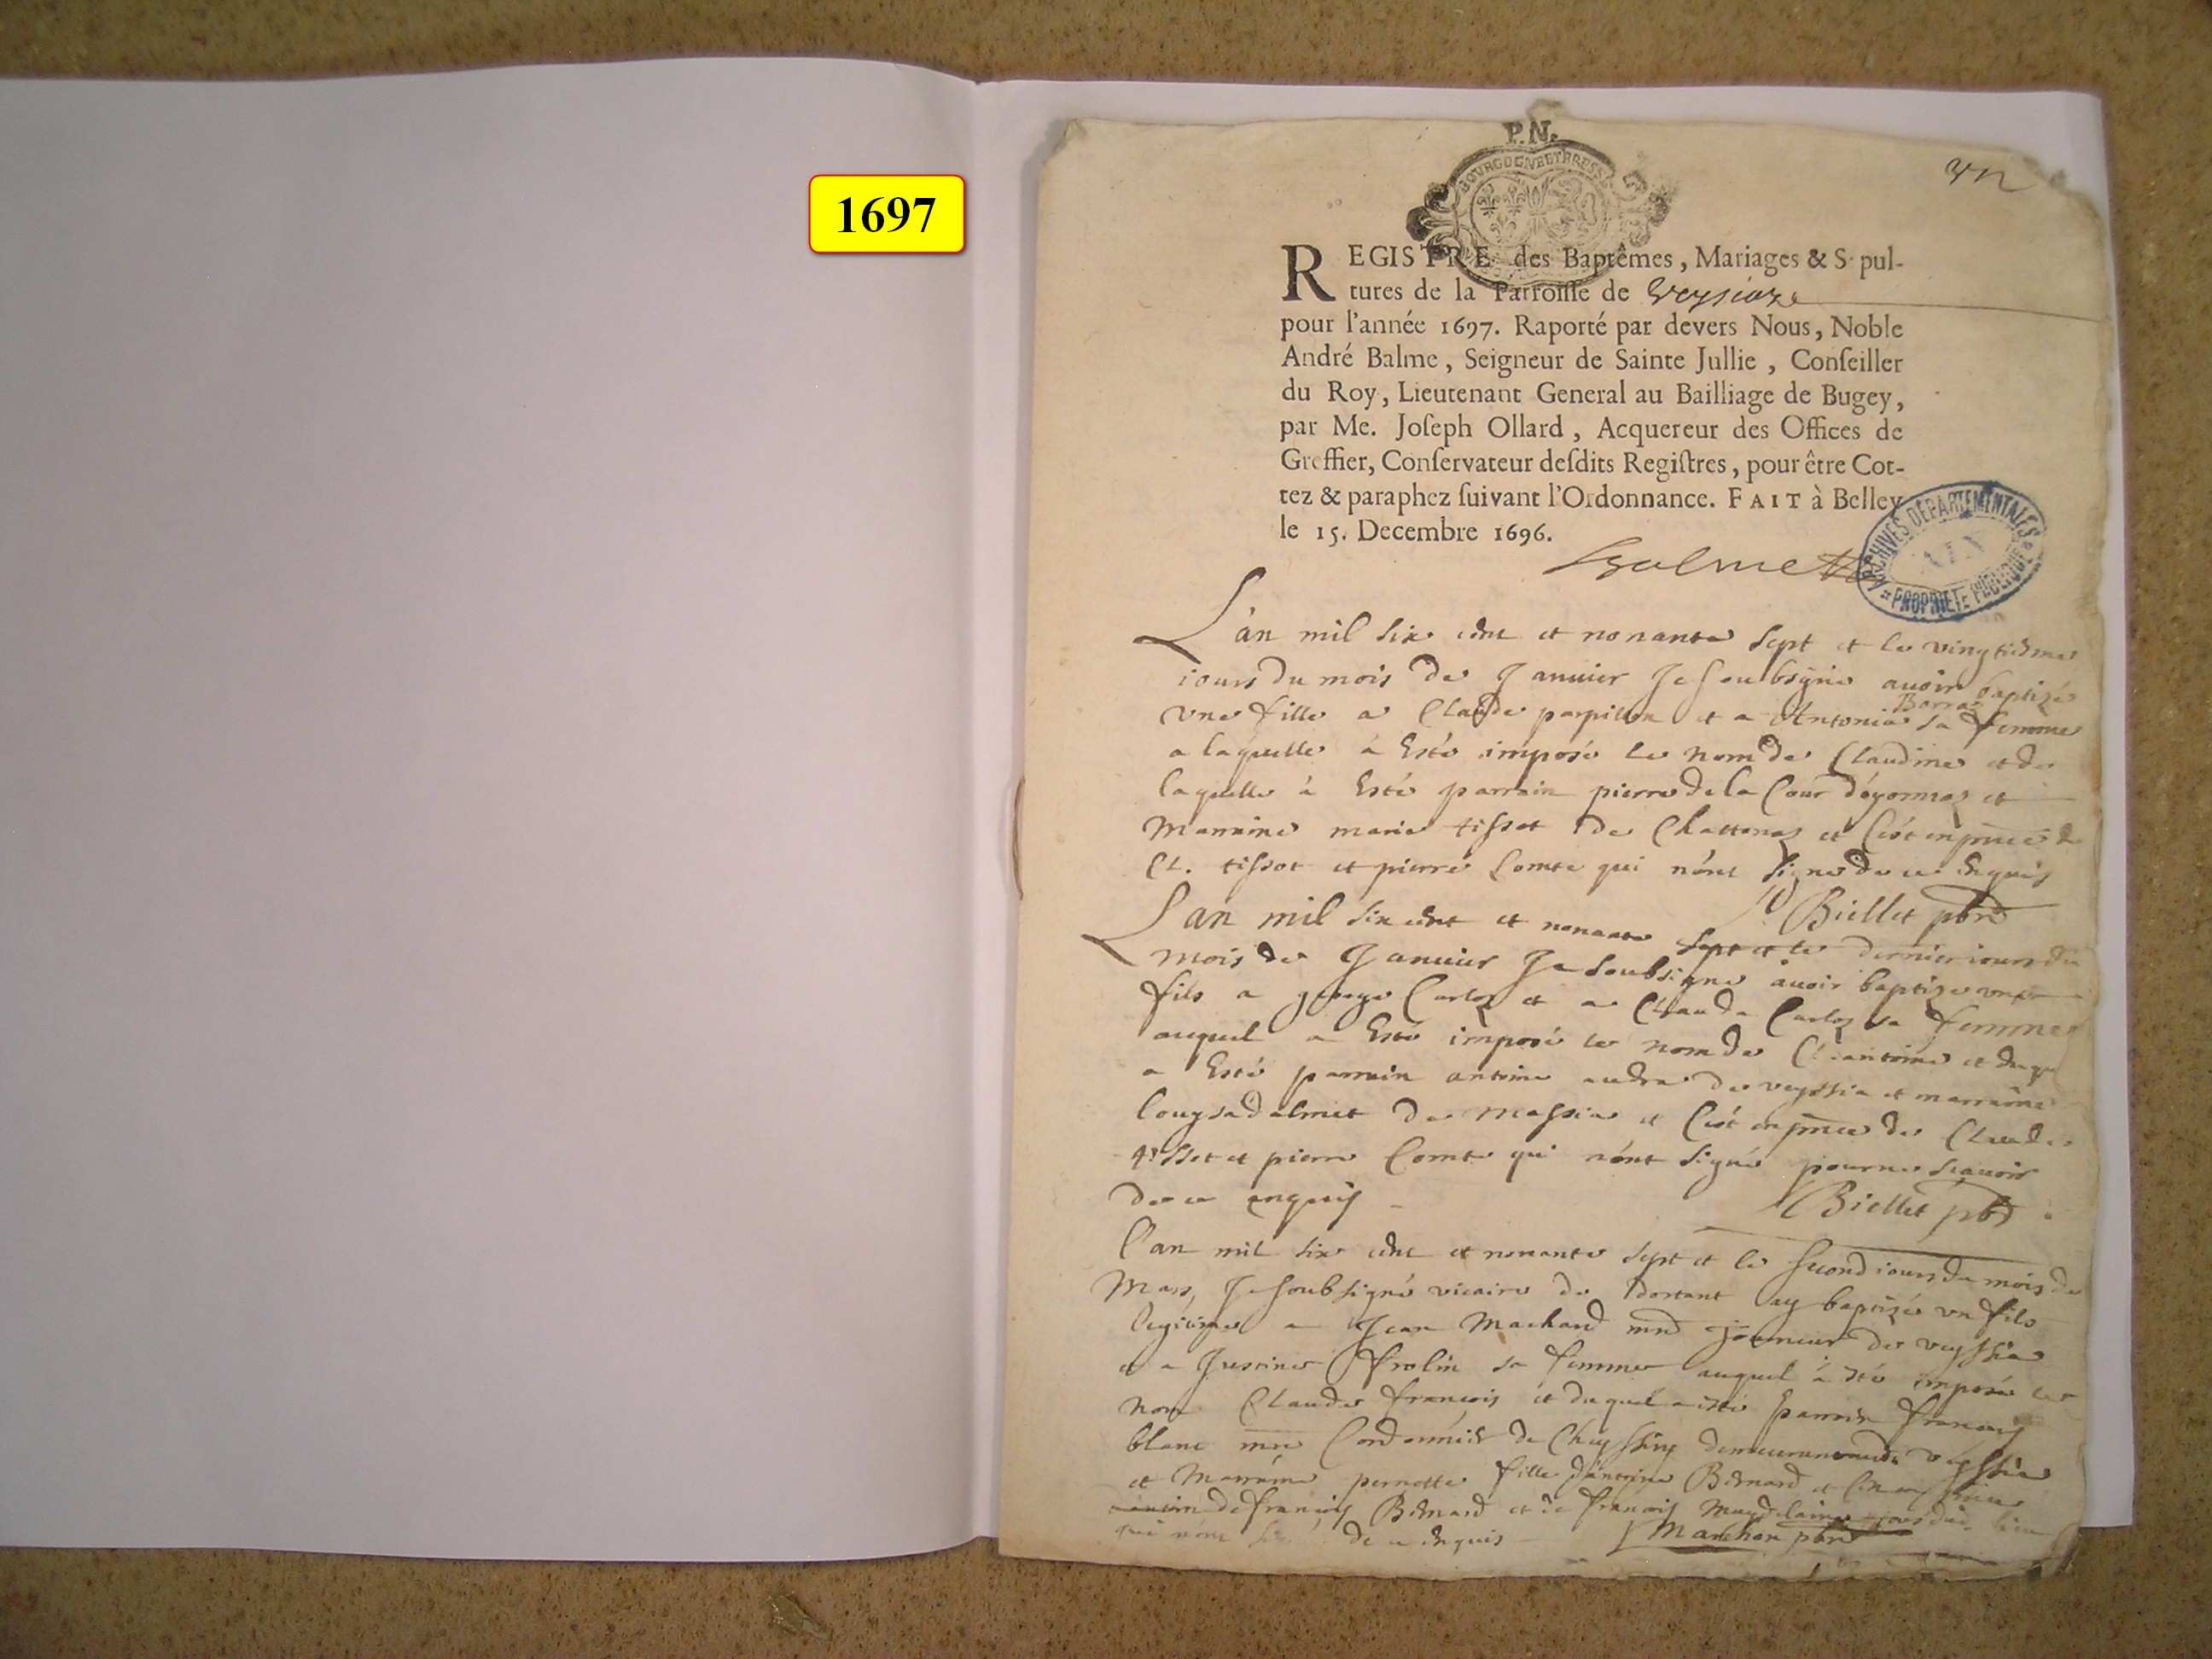 1697
P.N.
BOURGOGNE ET BRESSE
un
REGISTRE des Baptêmes, Mariages & S pul-
tures de la Parroisse de Veysiaze
pour l'année 1697. Raporté par devers Nous, Noble
André Balme, Seigneur de Sainte Jullie, Conseiller
du Roy, Lieutenant General au Bailliage de Bugey,
par Me. Joseph Ollard, Acquereur des Offices de
Greffier, Conservateur desdits Registres, pour être Cot-
tez & paraphez suivant l'Ordonnance. FAIT à Belley
le 15. Decembre 1696.
Balme
ARCHIVES DÉPARTEMENTALES
AIN
PROPRIÉTÉ PUBLIQUE
L'an mil six cent et nonante sept et le vingtiesme
iours du mois de Januier Je soubsigné auoir baptizé
une fille a Claude parpillon et a Antonia Borraz sa femme
a laquelle à Esté imposé le nom de Claudine et de
laquelle à Esté parrain pierre de la Cour d'oyonnaz et
Marraine marie tissot de Chattonaz et C'est en pnce de
Cl. tissot et pierre Comte qui n'ont signé de ce Enquis
Biellet pbre
L'an mil six cent et nonante sept et le dernier iours du
mois de Januier Je soubsigné auoir baptize un
fils a Carloz et a Claude Carloz sa femme
auquel a Esté imposé le nom de antoine et duq
a Esté parrain antoine de veyssia et marraine
louysa dalmet de Massia et C'est en pnce de Claude
tissot et pierre Comte qui n'ont signé pour ne scauoir
de ce enquis
Biellet pbr
L'an mil six cent et nonante sept et le second iours du mois de
Mars, Je soubsigné vicaire de dortant ay baptizé un fils
legitime a Jean Machard de veyssia
et a sa femme auquel à esté imposé le
nom Claude francois et duquel a esté parrain francois
blanc mre Cordonnier de demeurant veyssia
et Marraine pernette fille d'antoine Bernard et
de francois Bernard et de francois
qui n'ont signé de ce Enquis
Marchon pbre